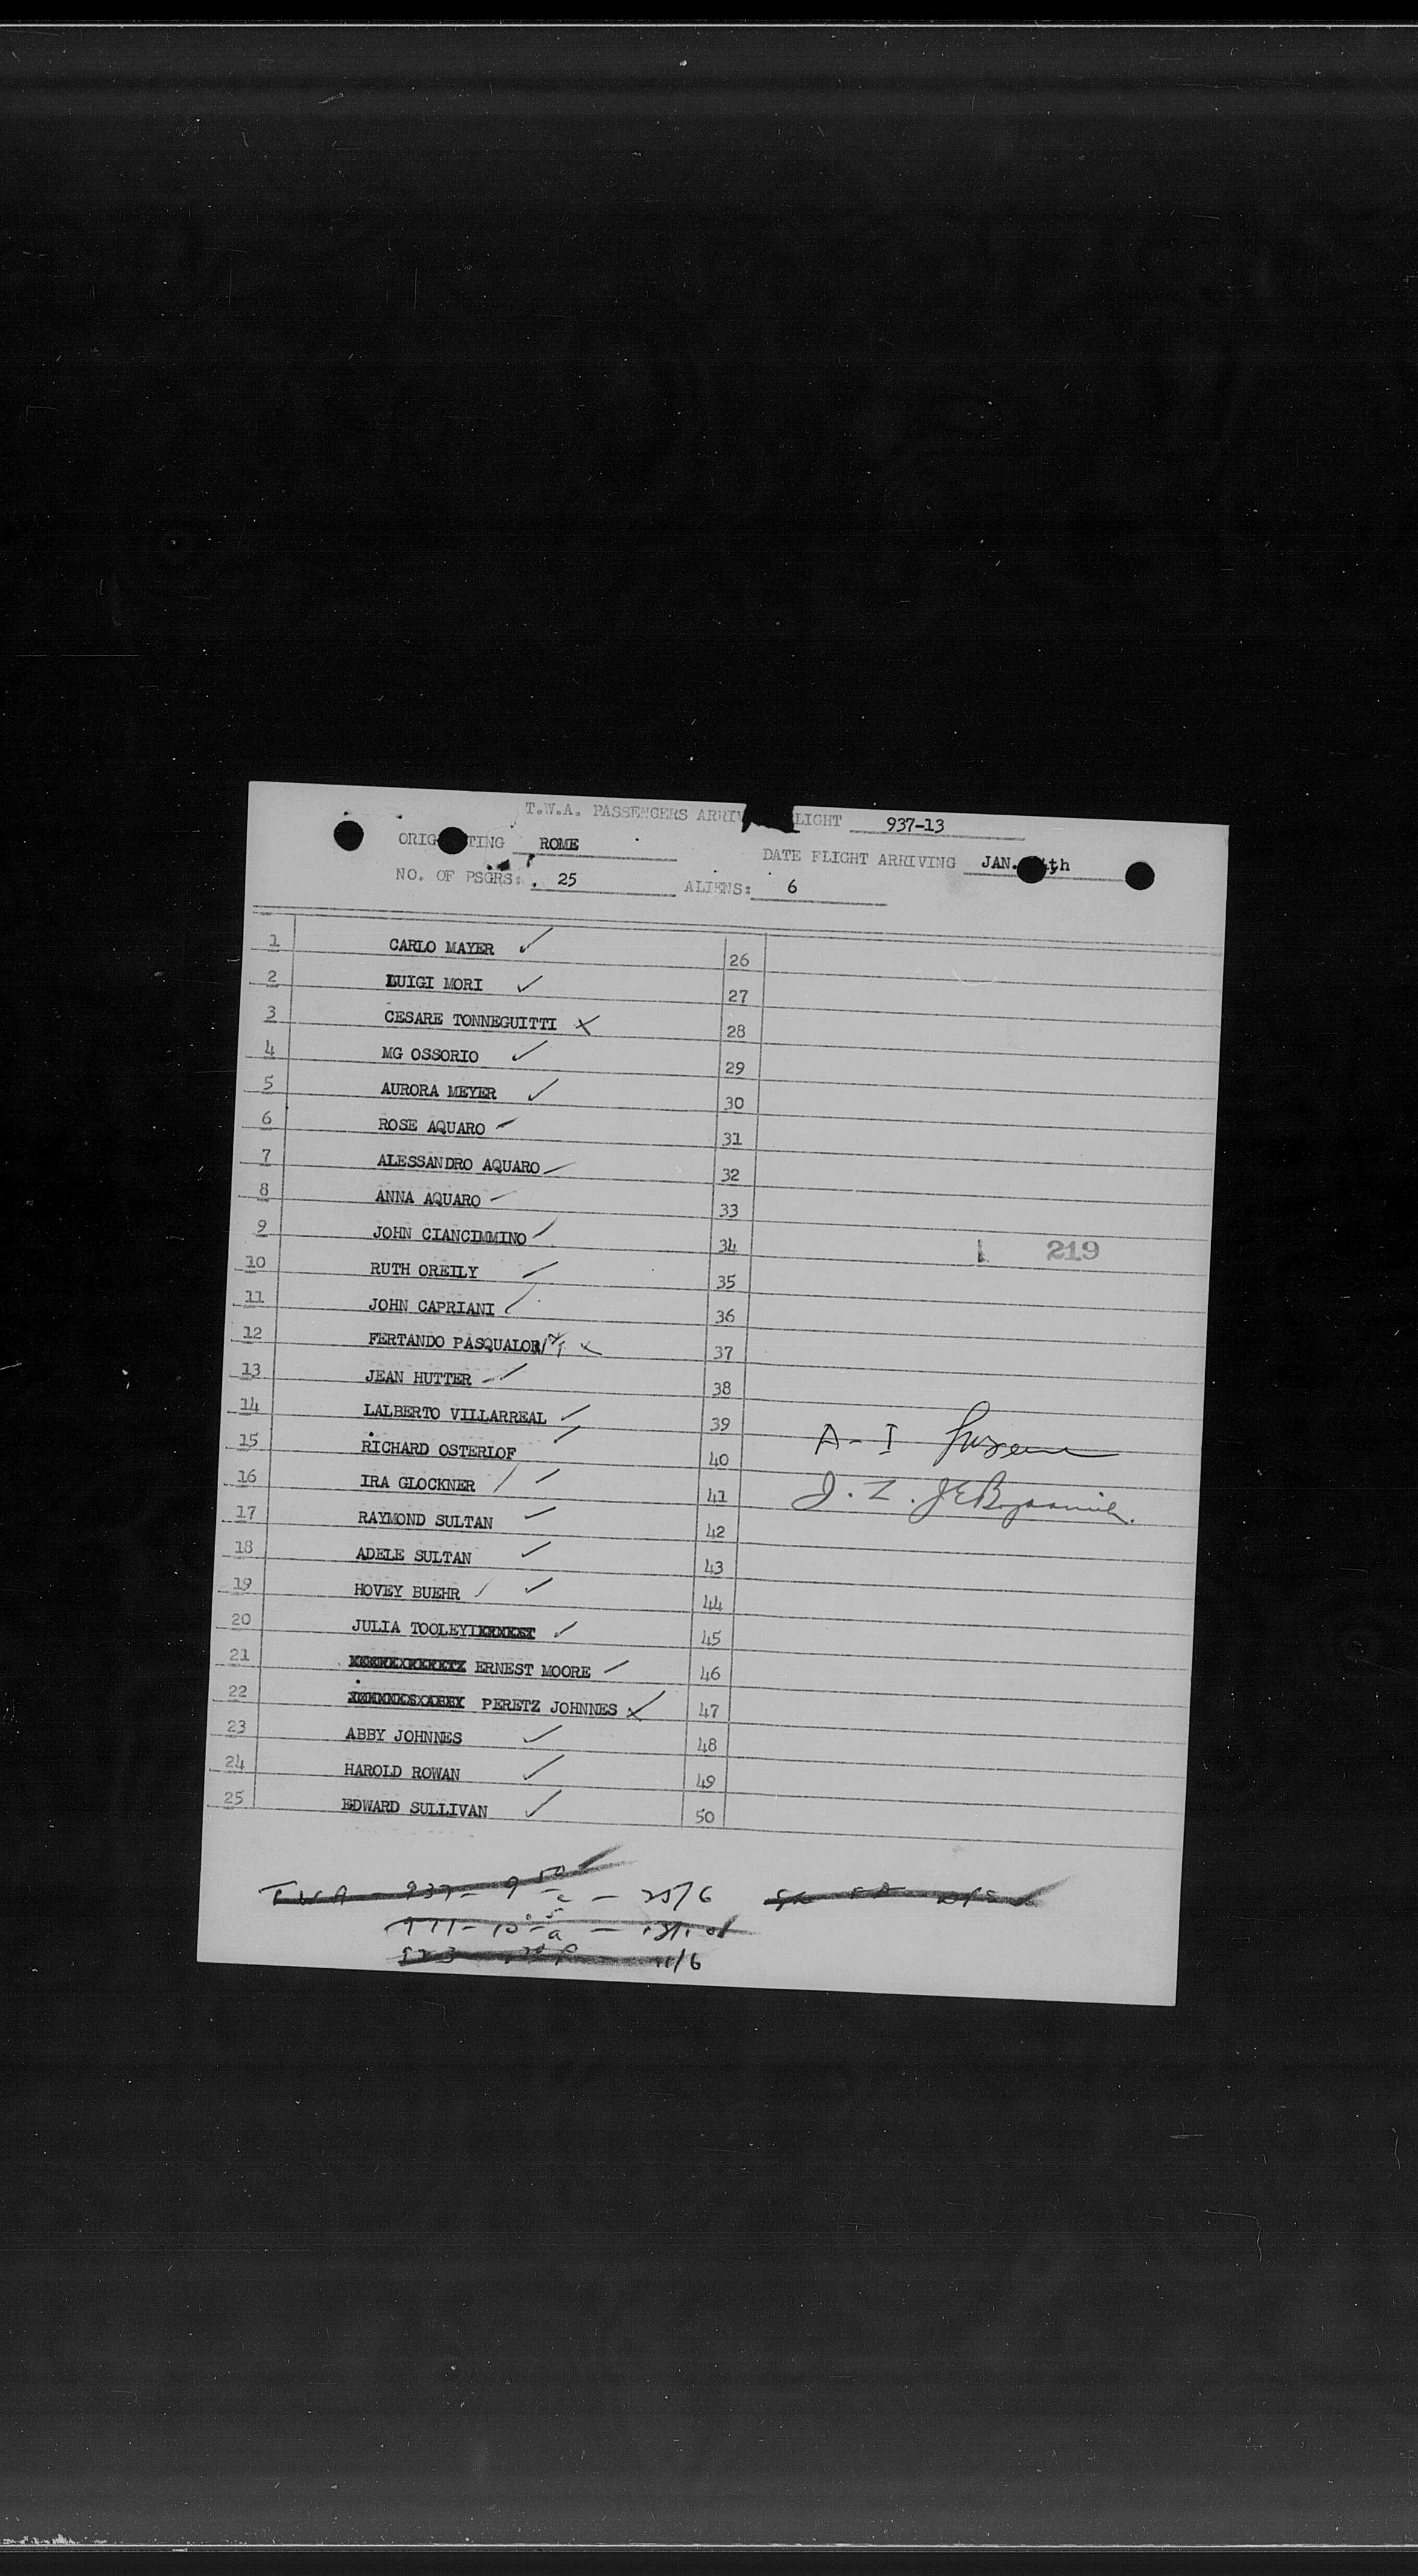 T.W.A. PASSENGERS ARRIV LIGHT 937-13
ORIG TING ROME
DATE FLIGHT ARRIVING JAN. 4th
NO. OF PSGRS: 25 ALIENS: 6
1 CARLO MAYER ✓ 26
2 LUIGI MORI ✓ 27
3 CESARE TONNEGUITTI X 28
4 MG OSSORIO ✓ 29
5 AURORA MEYER ✓ 30
6 ROSE AQUARO ✓ 31
7 ALESSANDRO AQUARO ✓ 32
8 ANNA AQUARO ✓ 33
9 JOHN CIANCIMMINO ✓ 34
219
10 RUTH OREILY ✓ 35
11 JOHN CAPRIANI ✓ 36
12 FERTANDO PASQUALO 37
13 JEAN HUTTER ✓ 38
14 LALBERTO VILLARREAL ✓ 39
15 RICHARD OSTERLOF ✓ 40
A-I
16 IRA GLOCKNER ✓ 41
17 RAYMOND SULTAN ✓ 42
18 ADELE SULTAN ✓ 43
19 HOVEY BUEHR ✓ 44
20 JULIA TOOLEY ✓ 45
21 ERNEST MOORE ✓ 46
22 PERETZ JOHNNES X 47
23 ABBY JOHNNES ✓ 48
24 HAROLD ROWAN ✓ 49
25 EDWARD SULLIVAN ✓ 50
TWA - 937 - 9 - 25/6